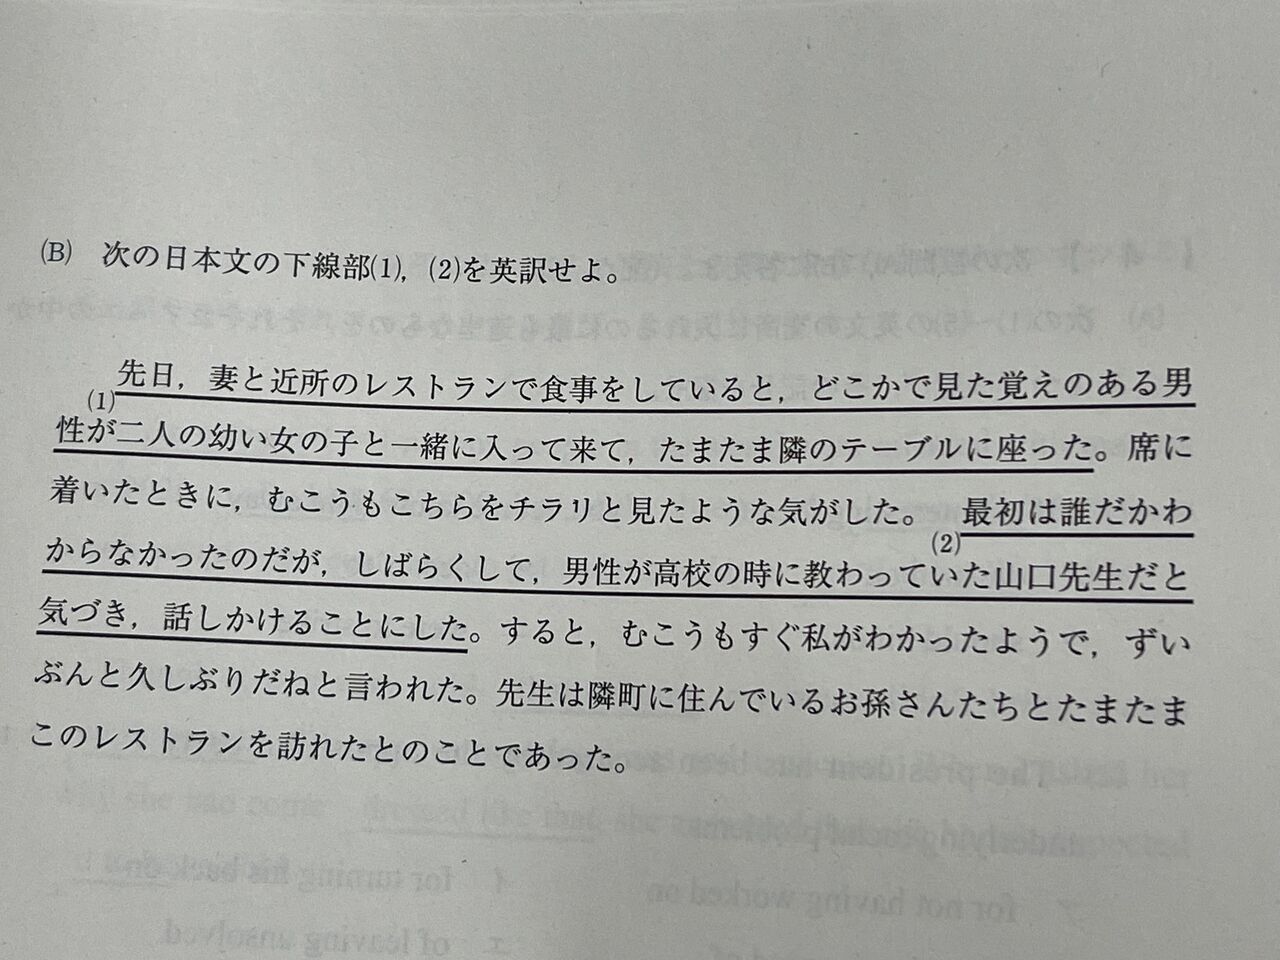 (B) 次の日本文の下線部(1)，(2)を英訳せよ。
(1)先日，妻と近所のレストランで食事をしていると，どこかで見た覚えのある男
性が二人の幼い女の子と一緒に入って来て，たまたま隣のテーブルに座った。席に
着いたときに，むこうもこちらをチラリと見たような気がした。(2)最初は誰だかわ
からなかったのだが，しばらくして，男性が高校の時に教わっていた山口先生だと
気づき，話しかけることにした。すると，むこうもすぐ私がわかったようで，ずい
ぶんと久しぶりだねと言われた。先生は隣町に住んでいるお孫さんたちとたまたま
このレストランを訪れたとのことであった。